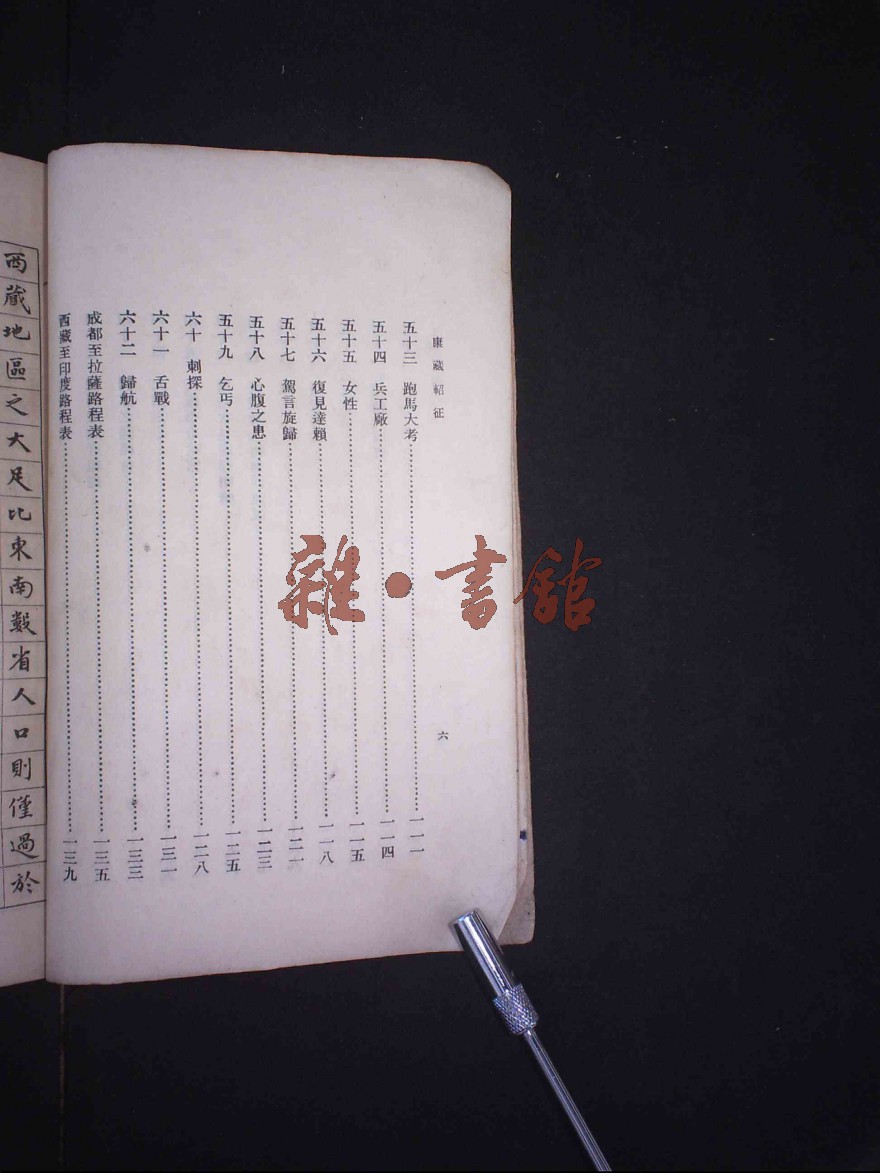 康藏軺征
五十三　跑馬大考……一一一
五十四　兵工廠……一一四
五十五　女性……一一五
五十六　復見達賴……一一八
五十七　駕言旋歸……一二一
五十八　心腹之患……一二三
五十九　乞丐……一二五
六十　刺探……一二八
六十一　舌戰……一三一
六十二　歸航……一三三
成都至拉薩路程表……一三五
西藏至印度路程表……一三九
六
西藏地區之大足比東南數省人口則僅過於
雜·書館